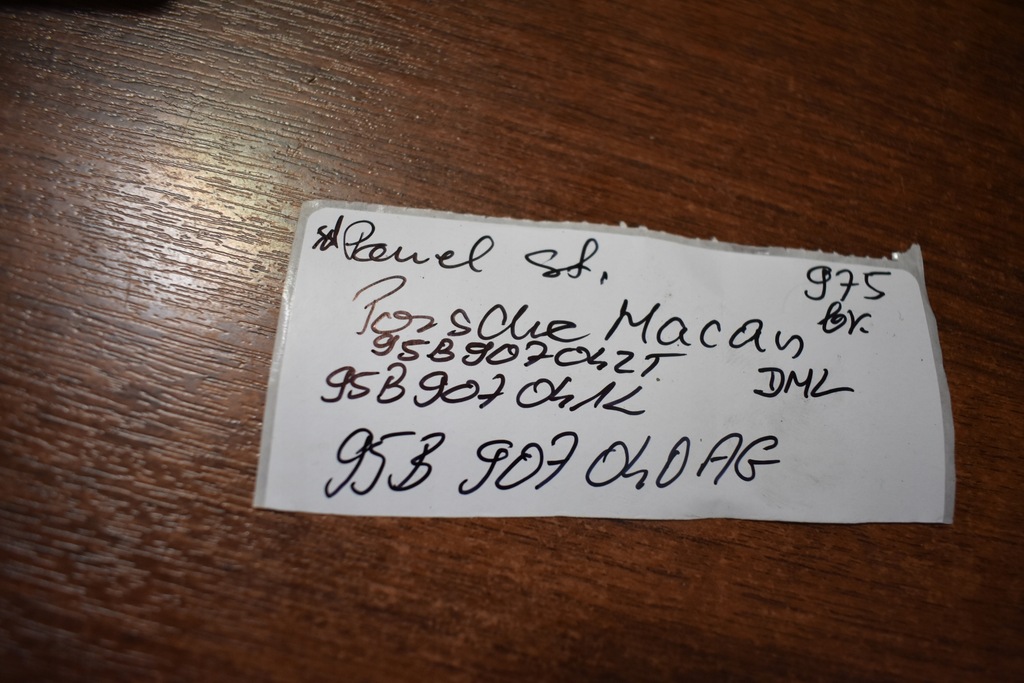 Pawel St.
975
Porsche Macan
br.
95B907042T
DML
95B907041L
95B 907 040AG